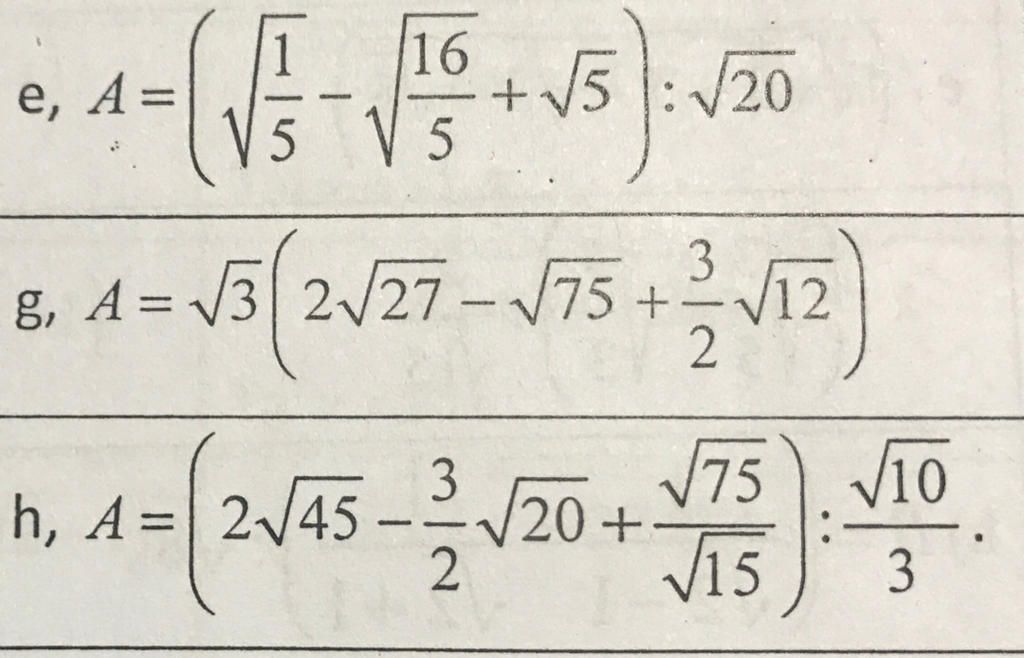 e, $A = \left( \sqrt{\frac{1}{5}} - \sqrt{\frac{16}{5}} + \sqrt{5} \right) : \sqrt{20}$
g, $A = \sqrt{3} \left( 2\sqrt{27} - \sqrt{75} + \frac{3}{2}\sqrt{12} \right)$
h, $A = \left( 2\sqrt{45} - \frac{3}{2}\sqrt{20} + \frac{\sqrt{75}}{\sqrt{15}} \right) : \frac{\sqrt{10}}{3}.$